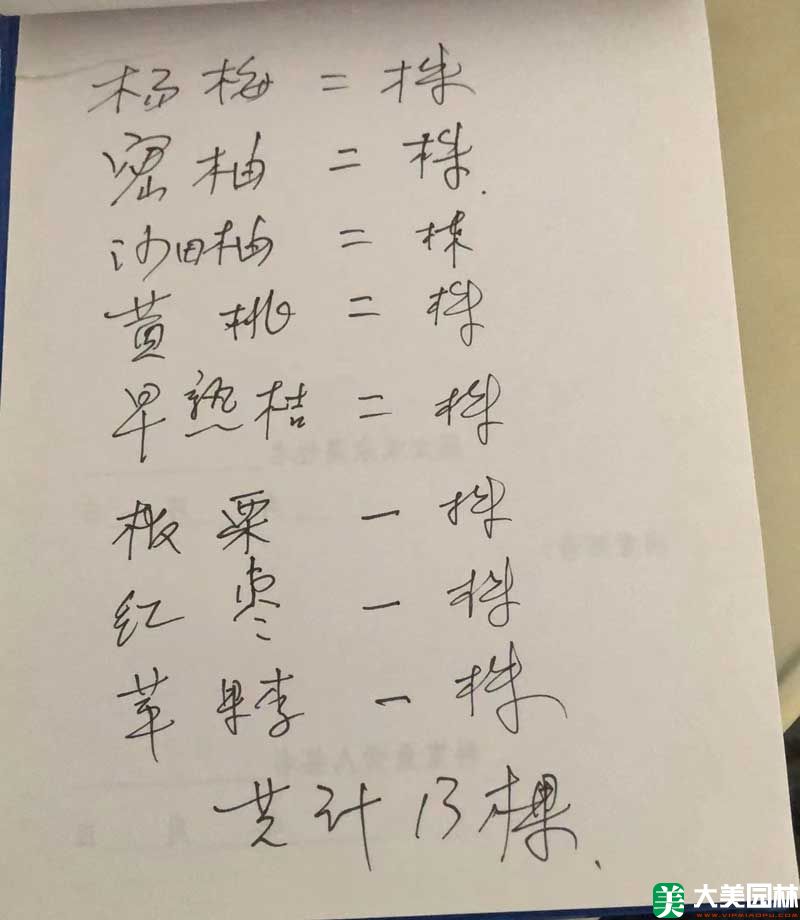 杨梅二株
密柚二株.
沙田柚二株
黄桃二株
早熟桔二株
板栗一株
红枣一株
苹果李一株
共计13棵.
美 大美园林